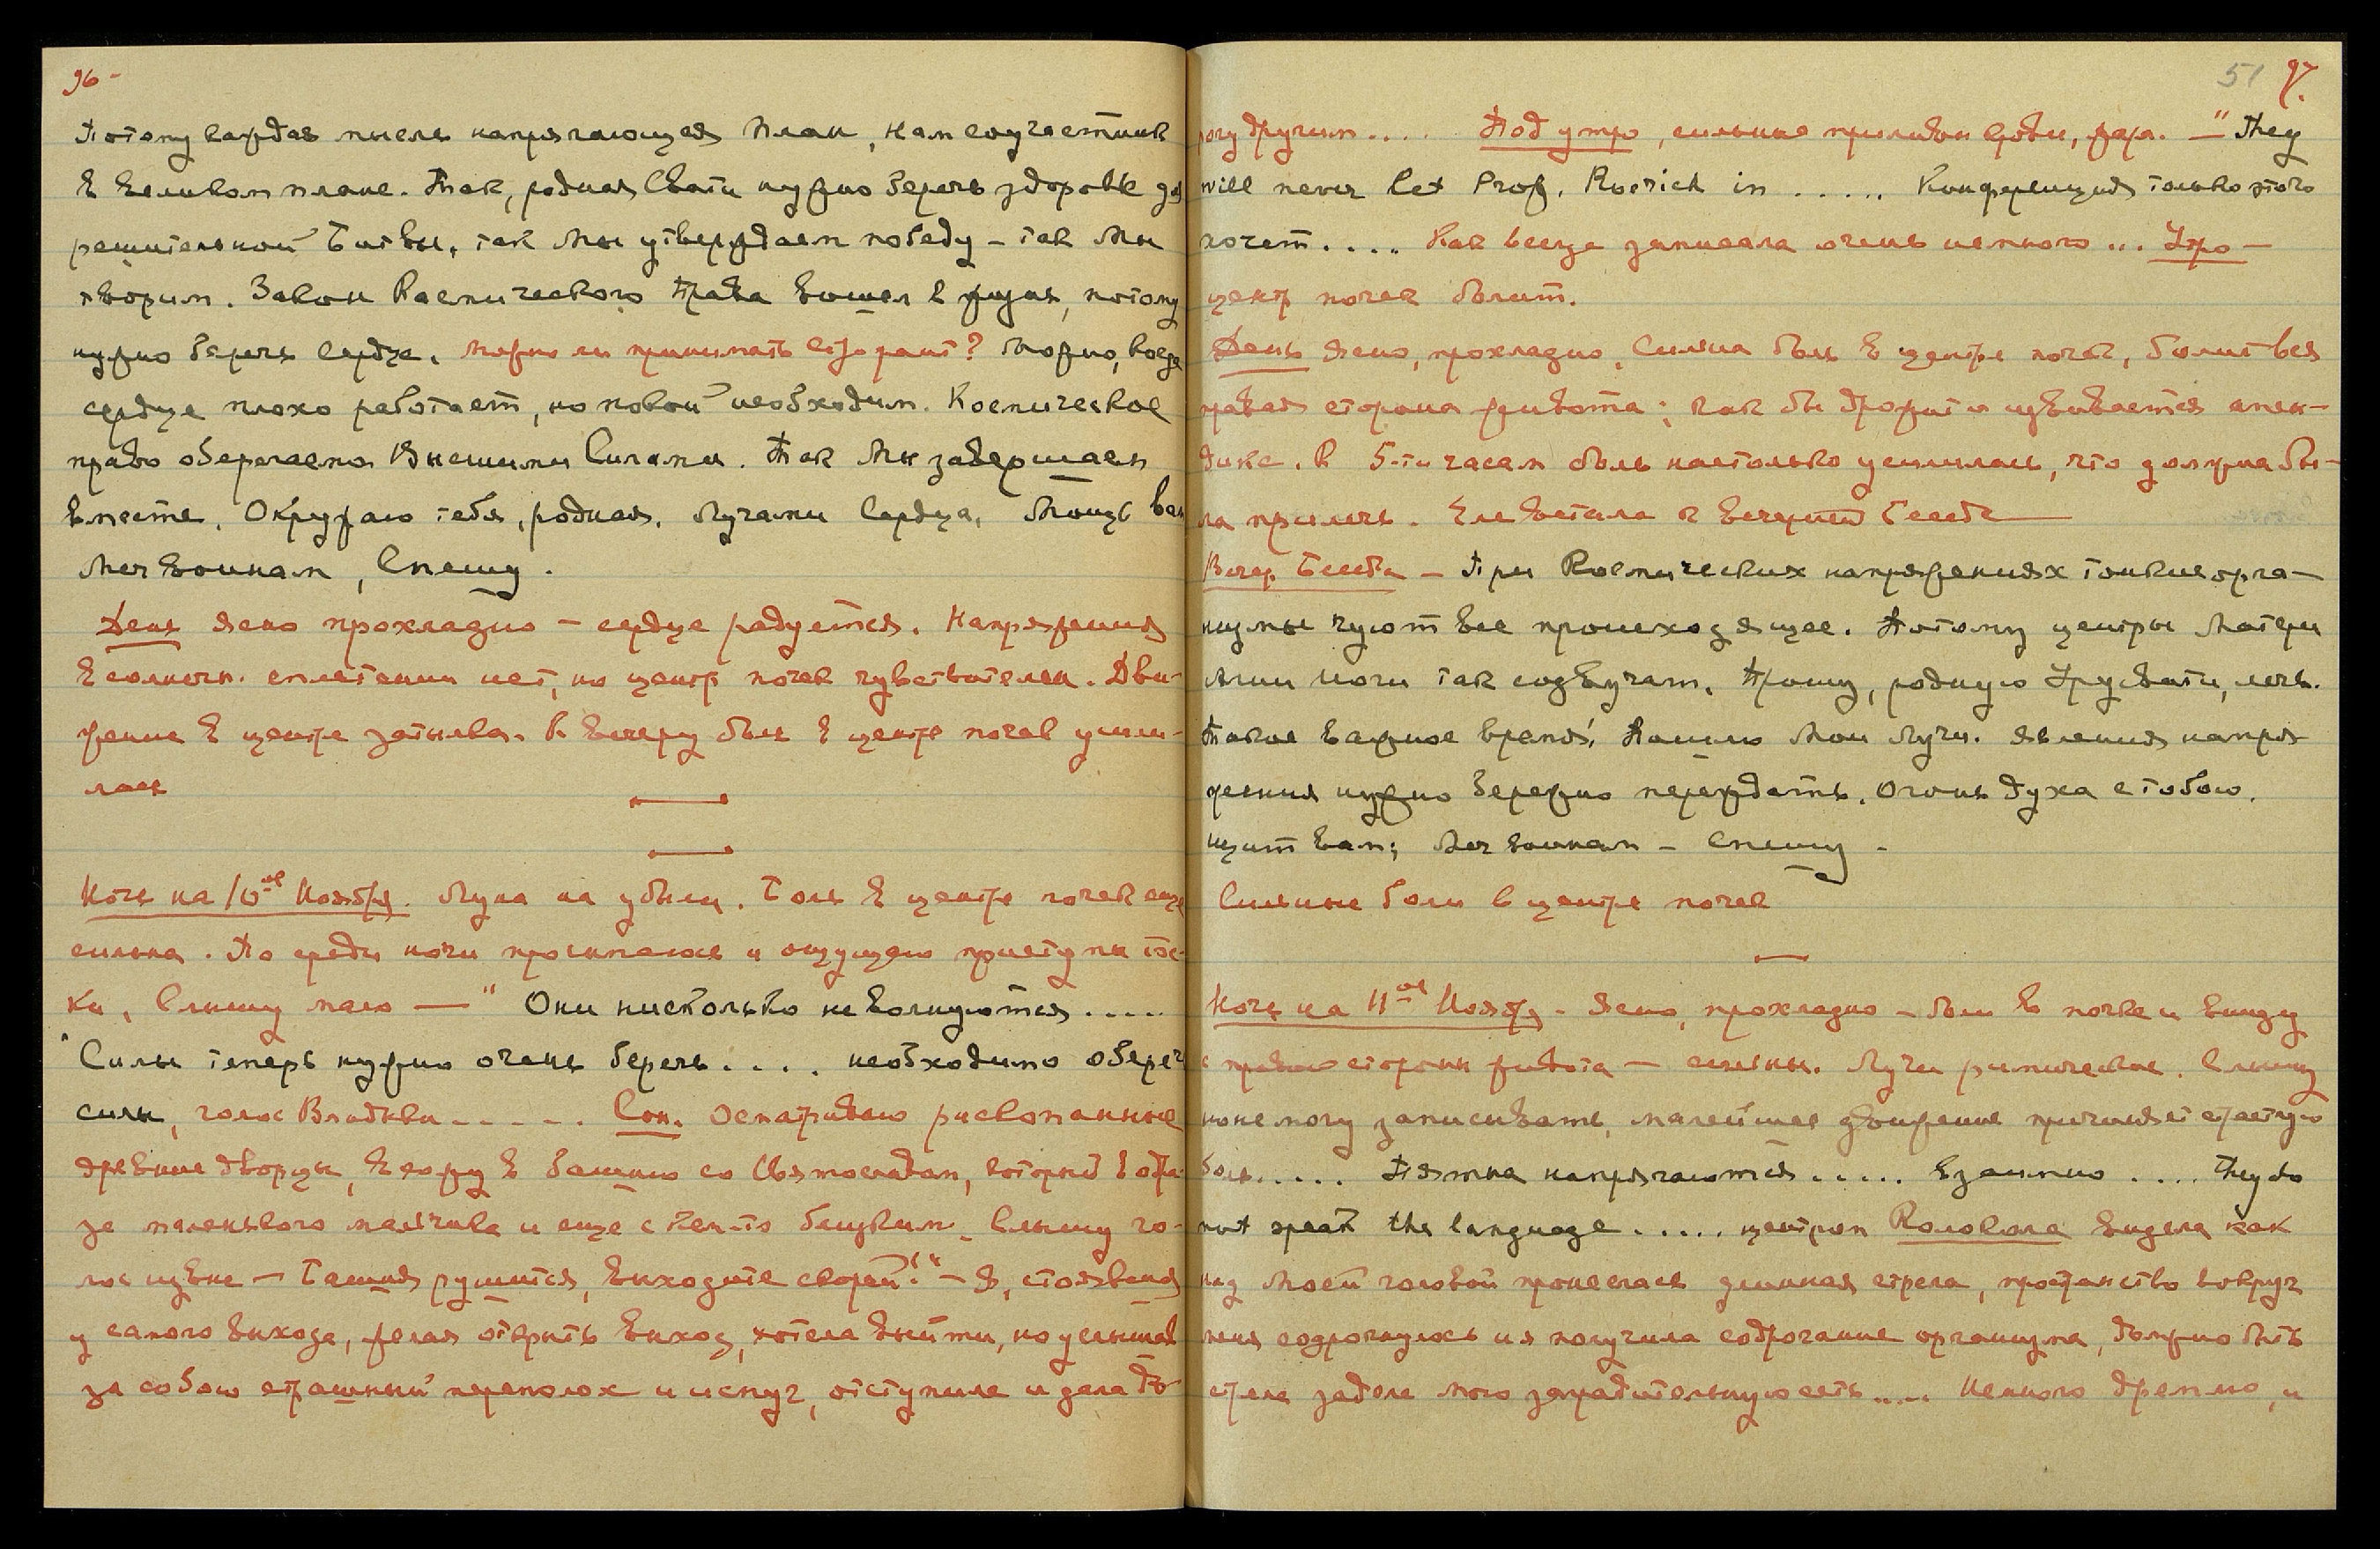 96 -
Потому каждая мысль напрягающая план, нам соучастник
в великом плане. Так, родная Свати нужно беречь здоровье для
решительной битвы, так мы утверждаем победу - так Мы
творим. Закон Космического Права вошел в жизнь, потому
нужно беречь сердце. можно ли принимать строфант? можно, когда
сердце плохо работает, но покой необходим. Космическое
право оберегаемо Высшими Силами. Так Мы завершаем
вместе. Окружаю тебя, родная, Лучами Сердца, Мощь вам
Меч воинам, Спешу.
День ясно прохладно - сердце радуется. Напряжения
в солнечн. сплетении нет, но центр почек чувствителен. Дви-
жение в центре затылка. К вечеру боль в центре почек усили-
лась
Ночь на 10ое Ноября. Луна на убыли. Боль в центре почек еще
сильна. По среди ночи просыпаюсь и ощущаю приступы тос-
ки, Слышу мало — " Они нисколько не волнуются .....
"Силы теперь нужно очень беречь .... необходимо обереч
силы, голос Владыки ..... Сон. Осматриваю раскопанные
древние дворцы, вхожу в башню со Святославом, который в обра-
зе маленького мальчика и еще с кем-то близким. Слышу го-
лос извне — Башня рушится, выходите скорей!" - Я, стоявшая
у самого выхода, желая открыть выход, хотела выйти, но услышав
за собою страшный переполох и испуг, отступила и дала до-
51 97.
рогу другим .... Под утро, сильные приливы крови, жара. — "They
will never let Prof. Roerich in ..... Конференция только этого
хочет .... Как всегда записала очень немного ... Утро —
центр почек болит.
День ясно, прохладно. Сильна боль в центре почек, болит вся
правая сторона живота; как бы дрожит и извивается апен-
дикс. К 5-ти часам боль настолько усилилась, что должна бы-
ла прилечь. Еле встала к вечерней Беседе
Вечер. Беседа - При Космических напряжениях тонкие орга-
низмы чуют все происходящее. Потому центры Матери
Агни Йоги так созвучат. Прошу, родную Урусвати, лечь.
Такое важное время! Пошлю Мои Лучи. Явления напря-
жения нужно бережно переждать. Огонь духа с тобою.
щит вам; Меч воинам - Спешу -
Сильные боли в центре почек
Ночь на 11ое Ноября - Ясно, прохладно - боли в почке и внизу
с правой стороны живота — сильны. Лучи ритмические. Слышу
но не могу записывать, малейшее движение причиняет острую
боль ..... Пятна напрягаются ..... взаимно .... They do
not speak the language ..... центром Колокола видела как
над моей головой пронеслась длинная стрела, пространство вокруг
меня содрогнулось и я получила содрогание организма, должно быть
стрела задела мою заградительную сеть .... Немного дремлю, и